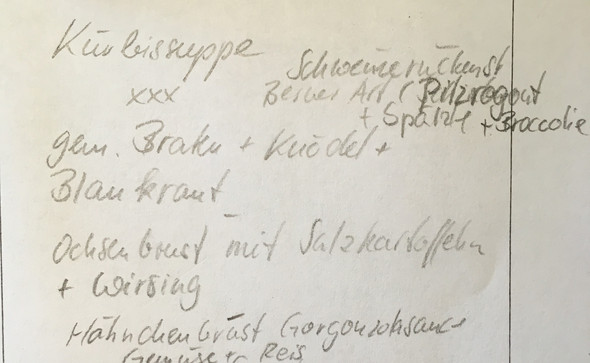 Kürbissuppe
xxx
Schweinerückenst
Berner Art / Pilzragout
+ Spätzle + Broccolie
gem. Braten + Knödel +
Blaukraut
Ochsenbrust mit Salzkartoffeln
+ Wirsing
Hähnchenbrust Gorgonzolasauce
Gemüse + Reis